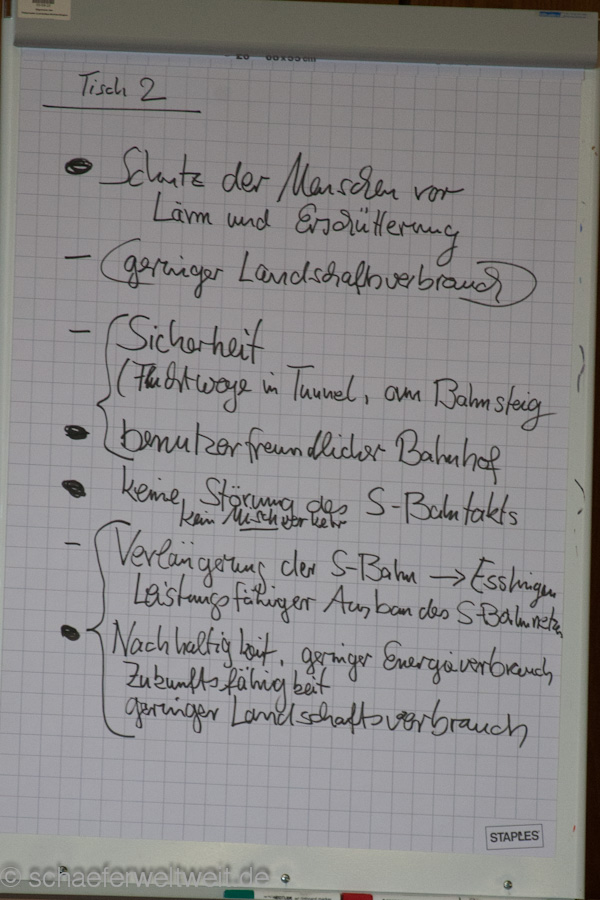 Tisch 2
● Schutz der Menschen vor
Lärm und Erschütterung
– (geringer Landschaftsverbrauch)
– Sicherheit
(Fluchtwege in Tunnel, am Bahnsteig
● benutzerfreundlicher Bahnhof
● keine Störung des S-Bahntakts
kein Mischverkehr
– Verlängerung der S-Bahn → Esslingen
Leistungsfähiger Ausbau des S-Bahnnetzes
● Nachhaltigkeit, geringer Energieverbrauch
Zukunftsfähigkeit
geringer Landschaftsverbrauch
STAPLES
© schaeferweltweit.de